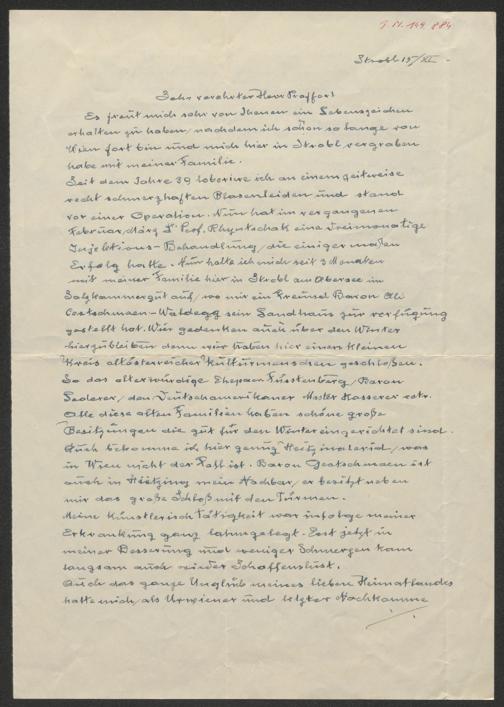 J. N. 149.884
Strobl 15/XII.
Sehr verehrter Herr
Es freut mich sehr von Ihnen ein Lebenszeichen
erhalten zu haben, nachdem ich schon so lange von
Wien fort bin und mich hier in Strobl vergraben
habe mit meiner Familie.
Seit dem Jahre 39 laboriere ich an einem zeitweise
recht schmerzhaften Blasenleiden und stand
vor einer Operation. Nun hat im vergangenen
Februar, März Prof. eine dreimonatige
Injektions-Behandlung, die einigermaßen
Erfolg hatte. Nun halte ich mich seit 3 Monaten
mit meiner Familie hier in Strobl am Abersee im
Salzkammergut auf, wo mir ein Freund Baron
sein Landhaus zur verfügung
gestellt hat. Wir gedenken auch über den Winter
hierzubleiben denn wir haben hier einen kleinen
Kreis altösterreicher Kulturmenschen geschloßen.
So das alterwürdige Ehepaar Fürstenberg, Baron
Lederer, den Deutschamerikaner Mister
Alle diese alten Familien haben schöne große
Besitzungen die gut für den Winter eingerichtet sind.
Auch bekomme ich hier genug Heitzmaterial, was
in Wien nicht der Fall ist. Baron ist
auch in Hietzing mein Nachbar, er besitzt neben
mir das große Schloß mit den Türmen.
Meine künstlerisch Tätigkeit war infolge meiner
Erkrankung ganz lahmgelegt. Erst jetzt in
meiner Besserung und weniger Schmerzen kam
langsam auch wieder Schaffenslust.
Auch das ganze Unglück meines lieben Heimatlandes
hatte mich, als Urwiener und letzter Nachkomme